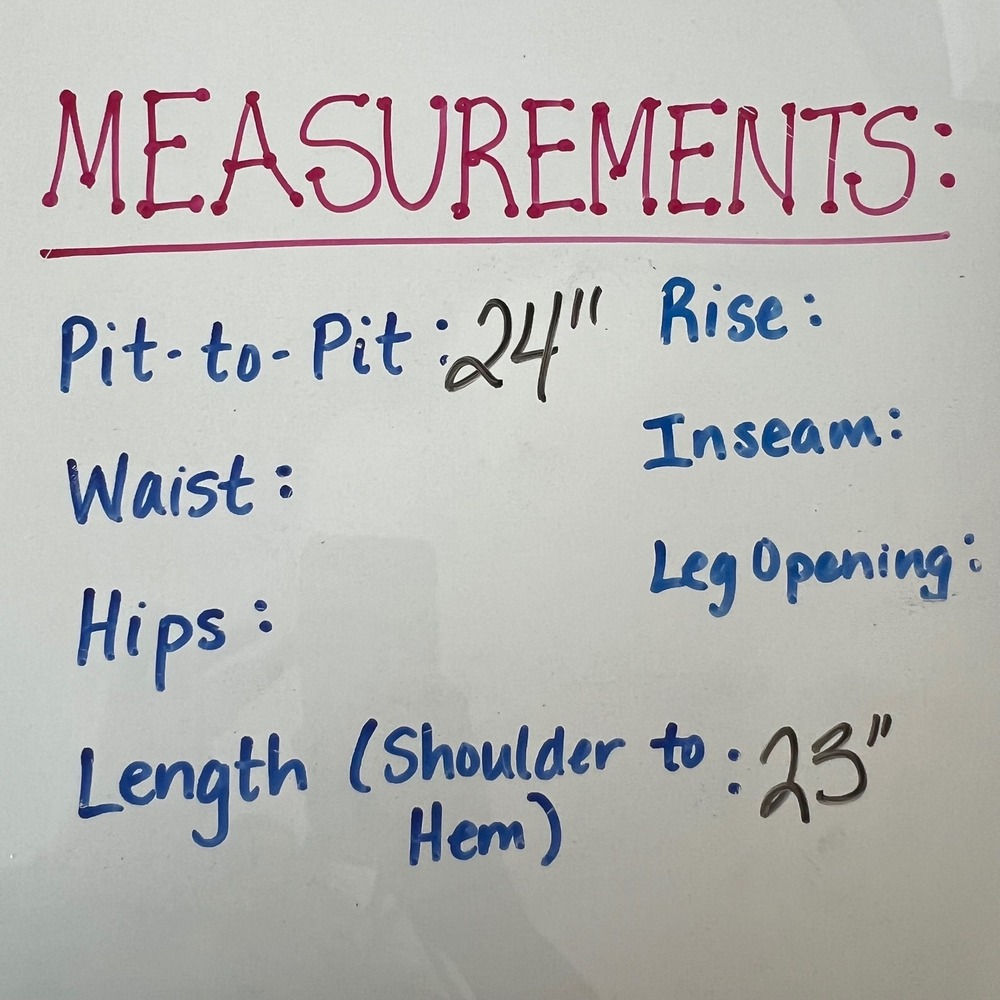 MEASUREMENTS:
Pit-to-Pit: 24"
Rise:
Waist:
Inseam:
Hips:
Leg Opening:
Length (Shoulder to : 23"
Hem)